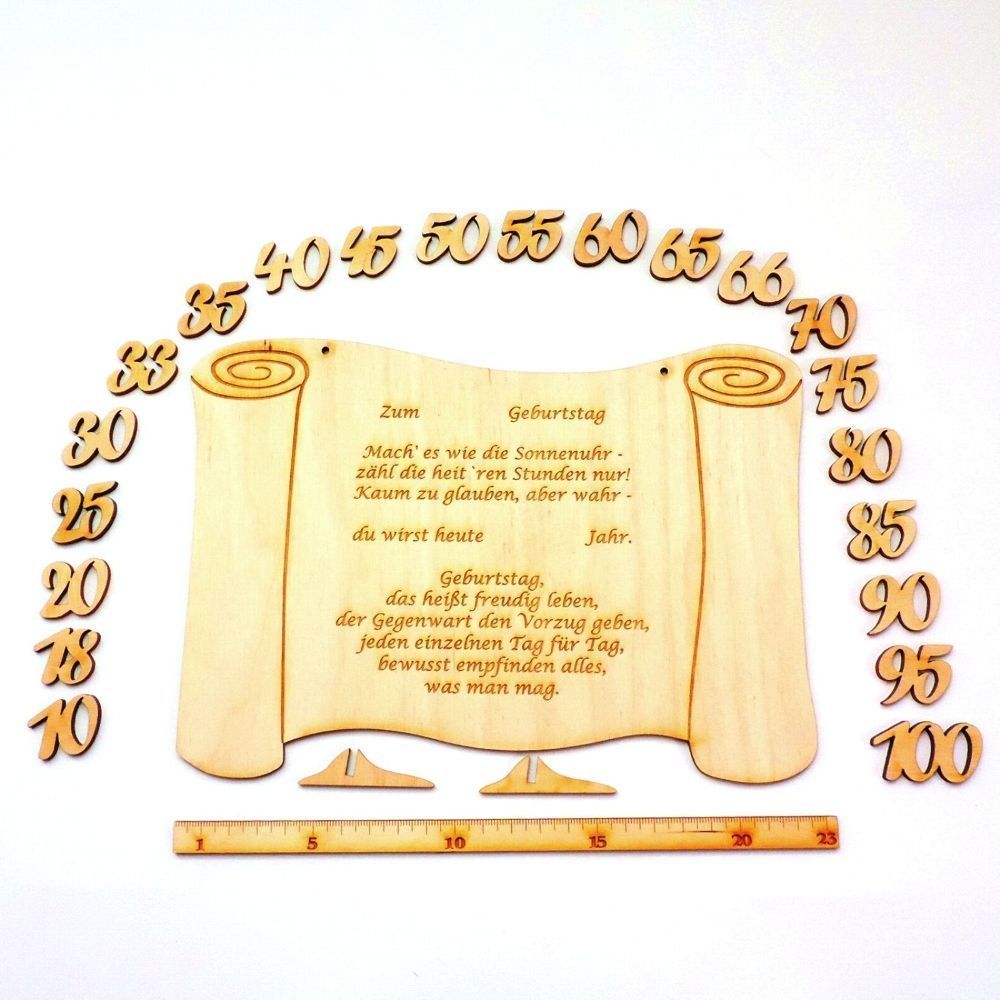 10
18
20
25
30
33
35
40
45
50
55
60
65
66
70
75
80
85
90
95
100
Zum Geburtstag
Mach' es wie die Sonnenuhr -
zähl die heit`ren Stunden nur!
Kaum zu glauben, aber wahr -
du wirst heute Jahr.
Geburtstag,
das heißt freudig leben,
der Gegenwart den Vorzug geben,
jeden einzelnen Tag für Tag,
bewusst empfinden alles,
was man mag.
1 5 10 15 20 23